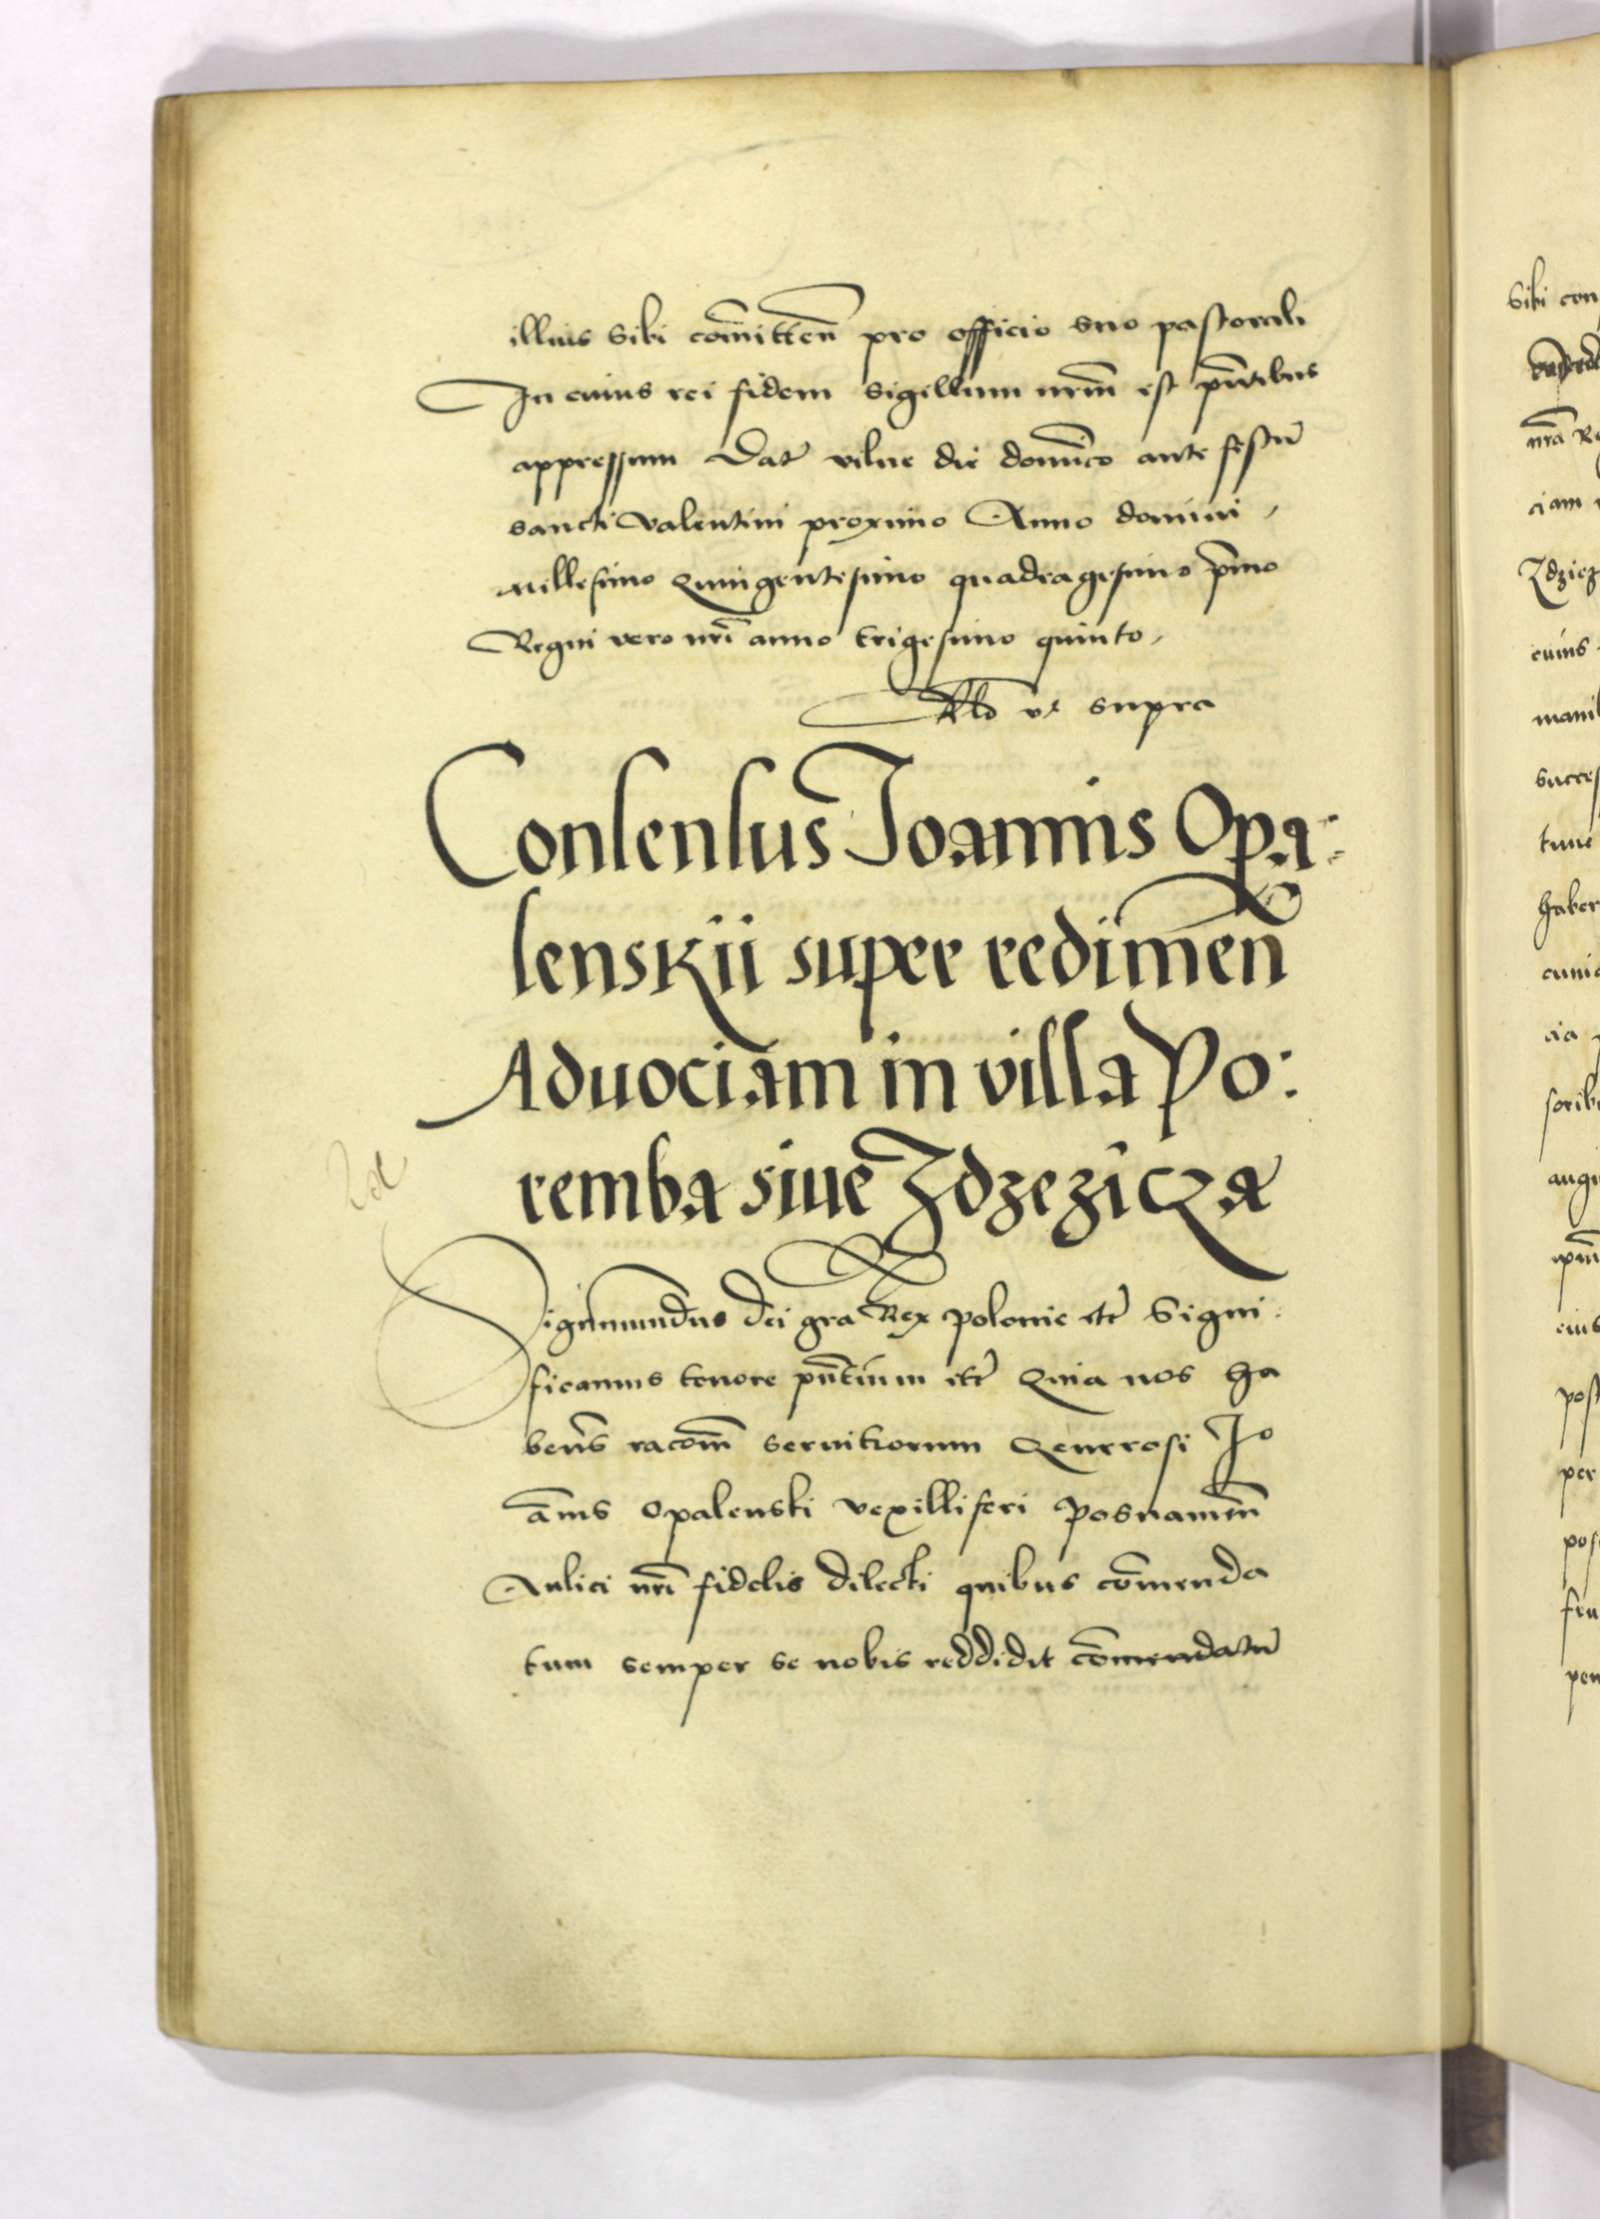 illius sibi com̄itteñ pro officio suo pastorali
In cuius rei fidem sigillum nr̄m est pn̄tibus
appressum Dat̄ vilne die domīco ante festū
sancti Valentini proximo Anno domini
millesimo Quingentesimo quadragesimo p̄mo
Regni vero nr̄i anno trigesimo quinto
ut supra
Consensus Joannis Opa
lenskii super redimeñ
Aduociam in villa Po:
remba siue Zdzezicza
Sigismundus dei gra Rex Polonie etc̄ Signi
ficamus tenore pn̄tium etc̄ Quia nos ha
ben̄s racōm seruitiorum Generosi Jo
an̄is Opalenski vexilliferi Posnanień
Aulici nr̄i fidelis dilecti quibus com̄enda
tum semper se nobis reddidit com̄endatū
Sibi con
nr̄a Re
ciam
Zdzicz
cuius
mani
succes
tunc
haber
cia
scrib
augu
eius
post
per
pos
fru
pen